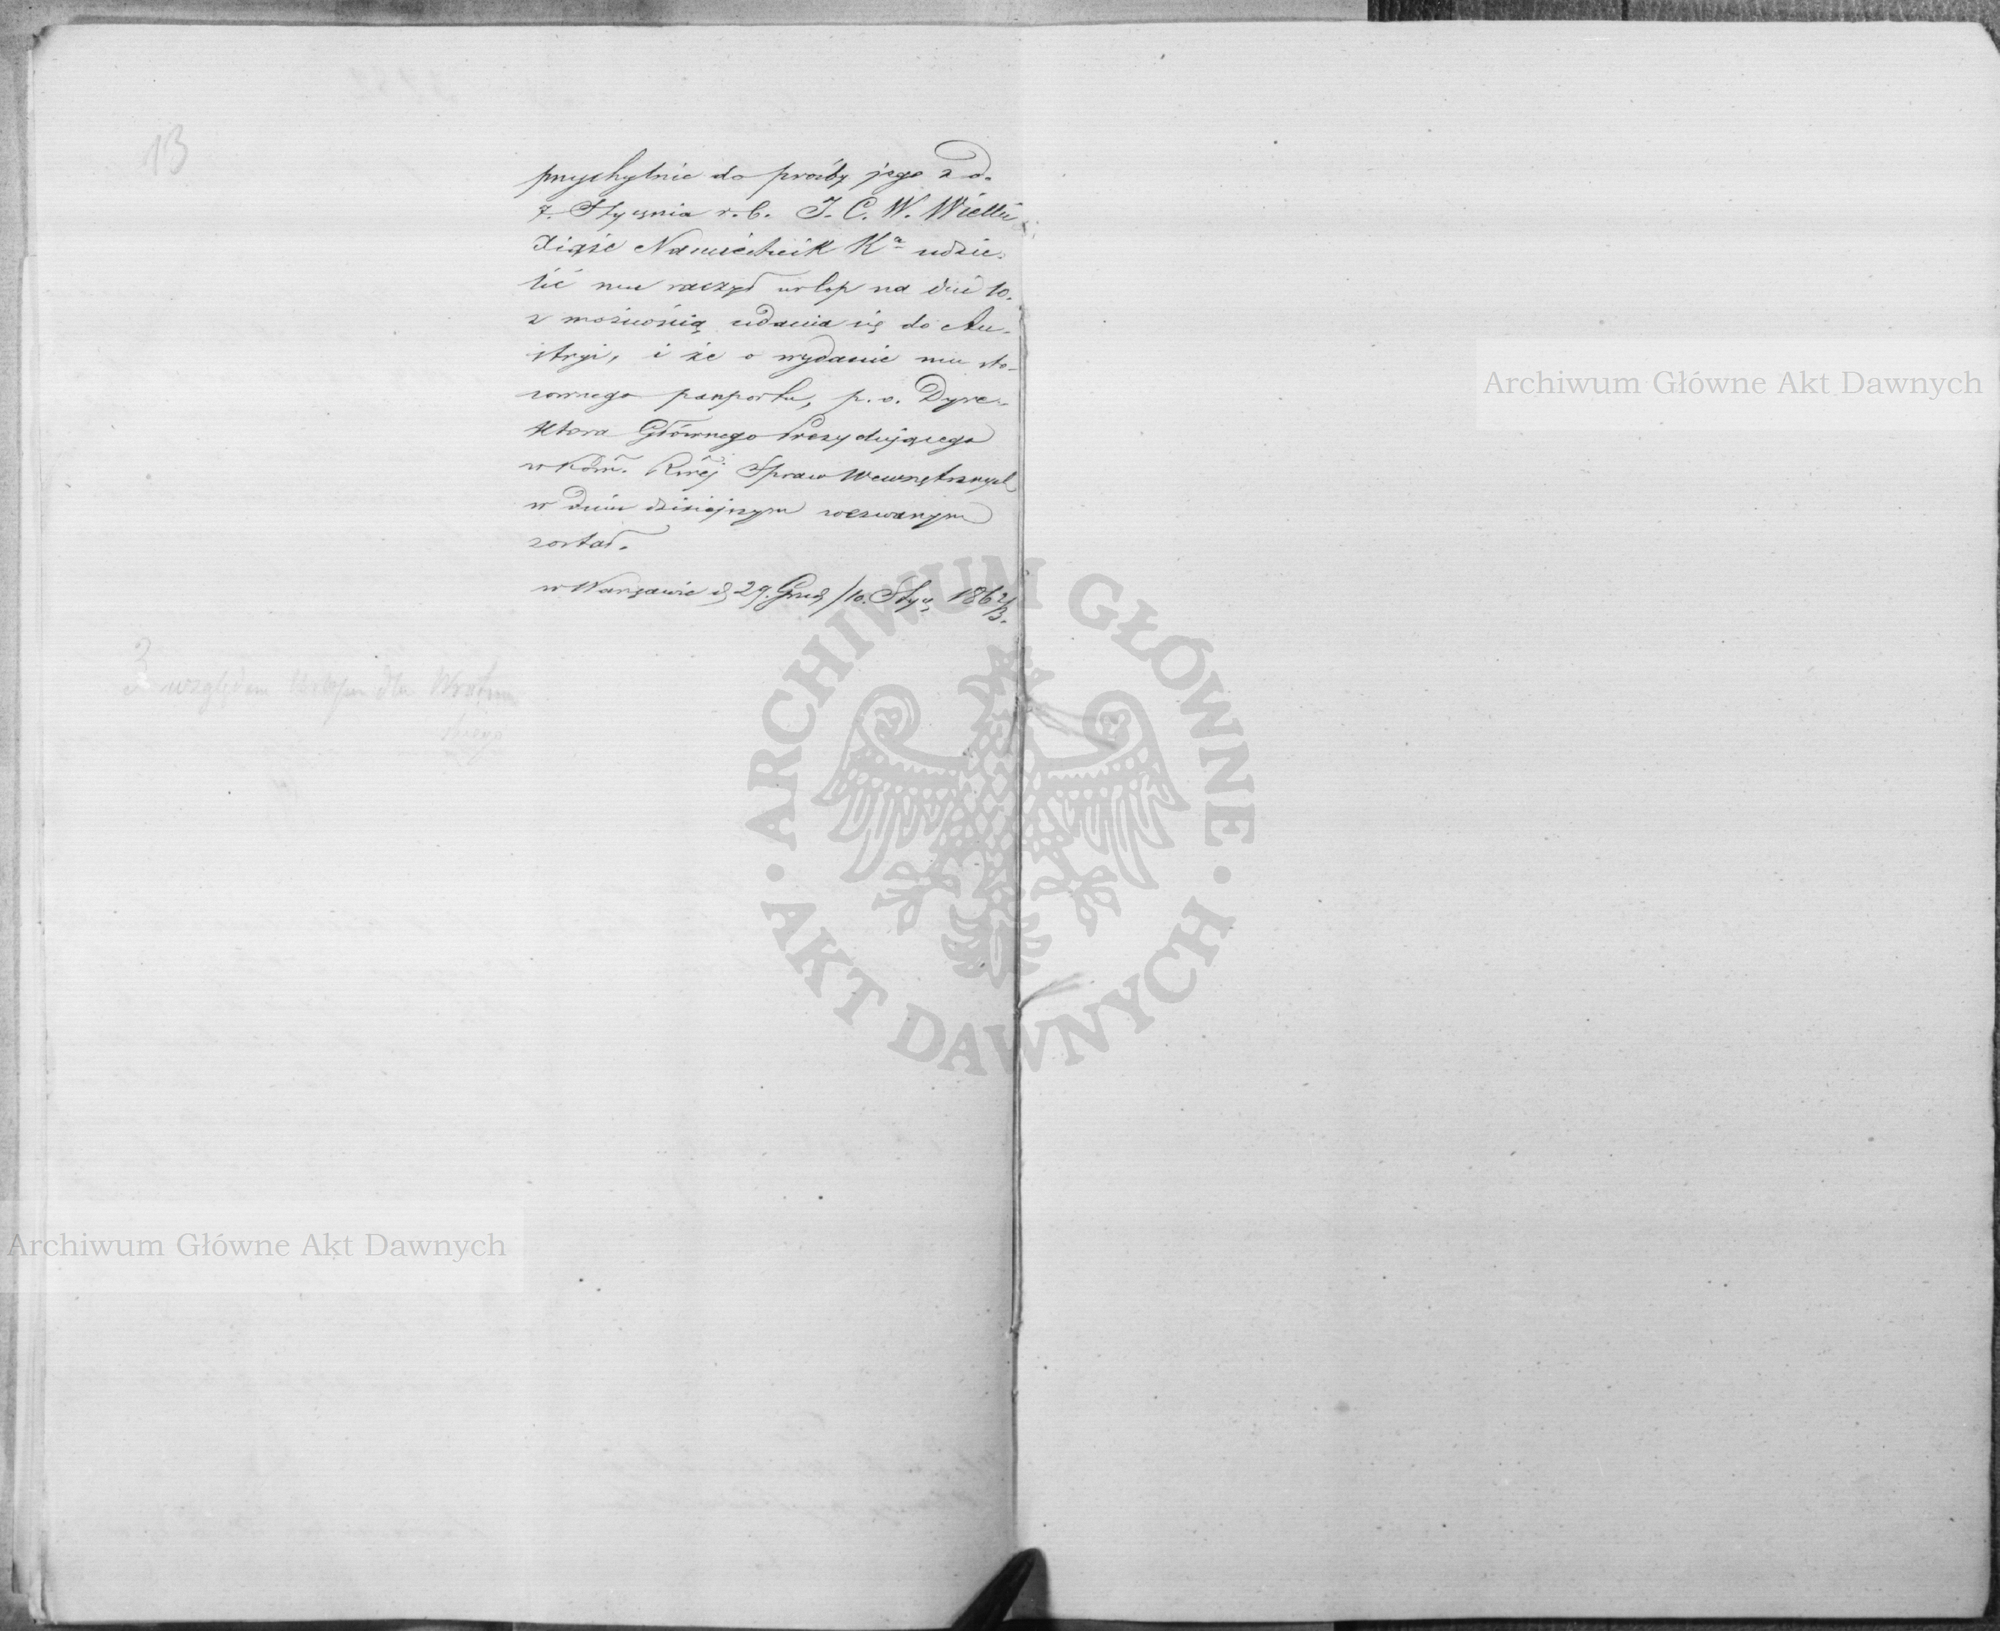 13
przychylnie do prośby jego z d.
7. Stycznia r. b. J. C. W. Wielki
Xiąże Namiestnik Kr. udzie-
lić mu raczył urlop na dni 10.
z możnością udania się do Au-
stryi, i że o wydanie mu sto-
sownego paszportu, p. o. Dyre-
ktora Głównego Prezydującego
w Kom. Rząd. Spraw Wewnętrznych
w dniu dzisiejszym wezwanym
został.
w Warszawie d. 29. Grud/10. Stycz. 1862/3.
względem Urlopu dla
skiego
Archiwum Główne Akt Dawnych
Archiwum Główne Akt Dawnych
ARCHIWUM GŁÓWNE
AKT DAWNYCH